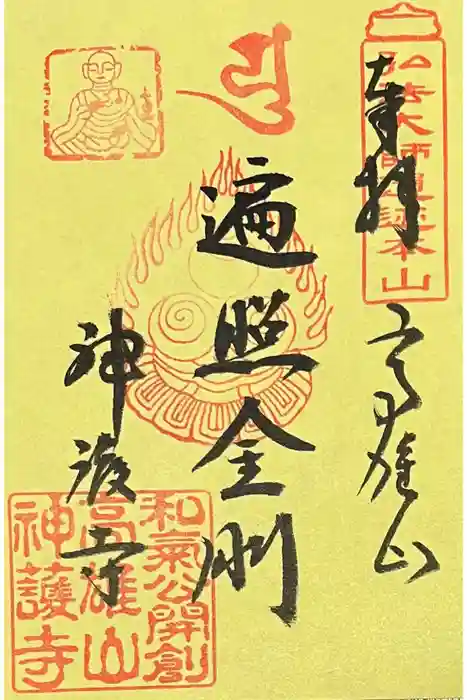 奉拝
弘法大師霊迹本山
高雄山
遍照金剛
神護寺
和氣公開創
高雄山
神護寺